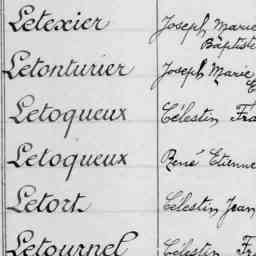 Letexier Joseph Marie
Baptiste
Letonturier Joseph Marie
Letoqueux Célestin Fra
Letoqueux René Etienne
Letort Célestin Jean
Letournel Célestin Fr